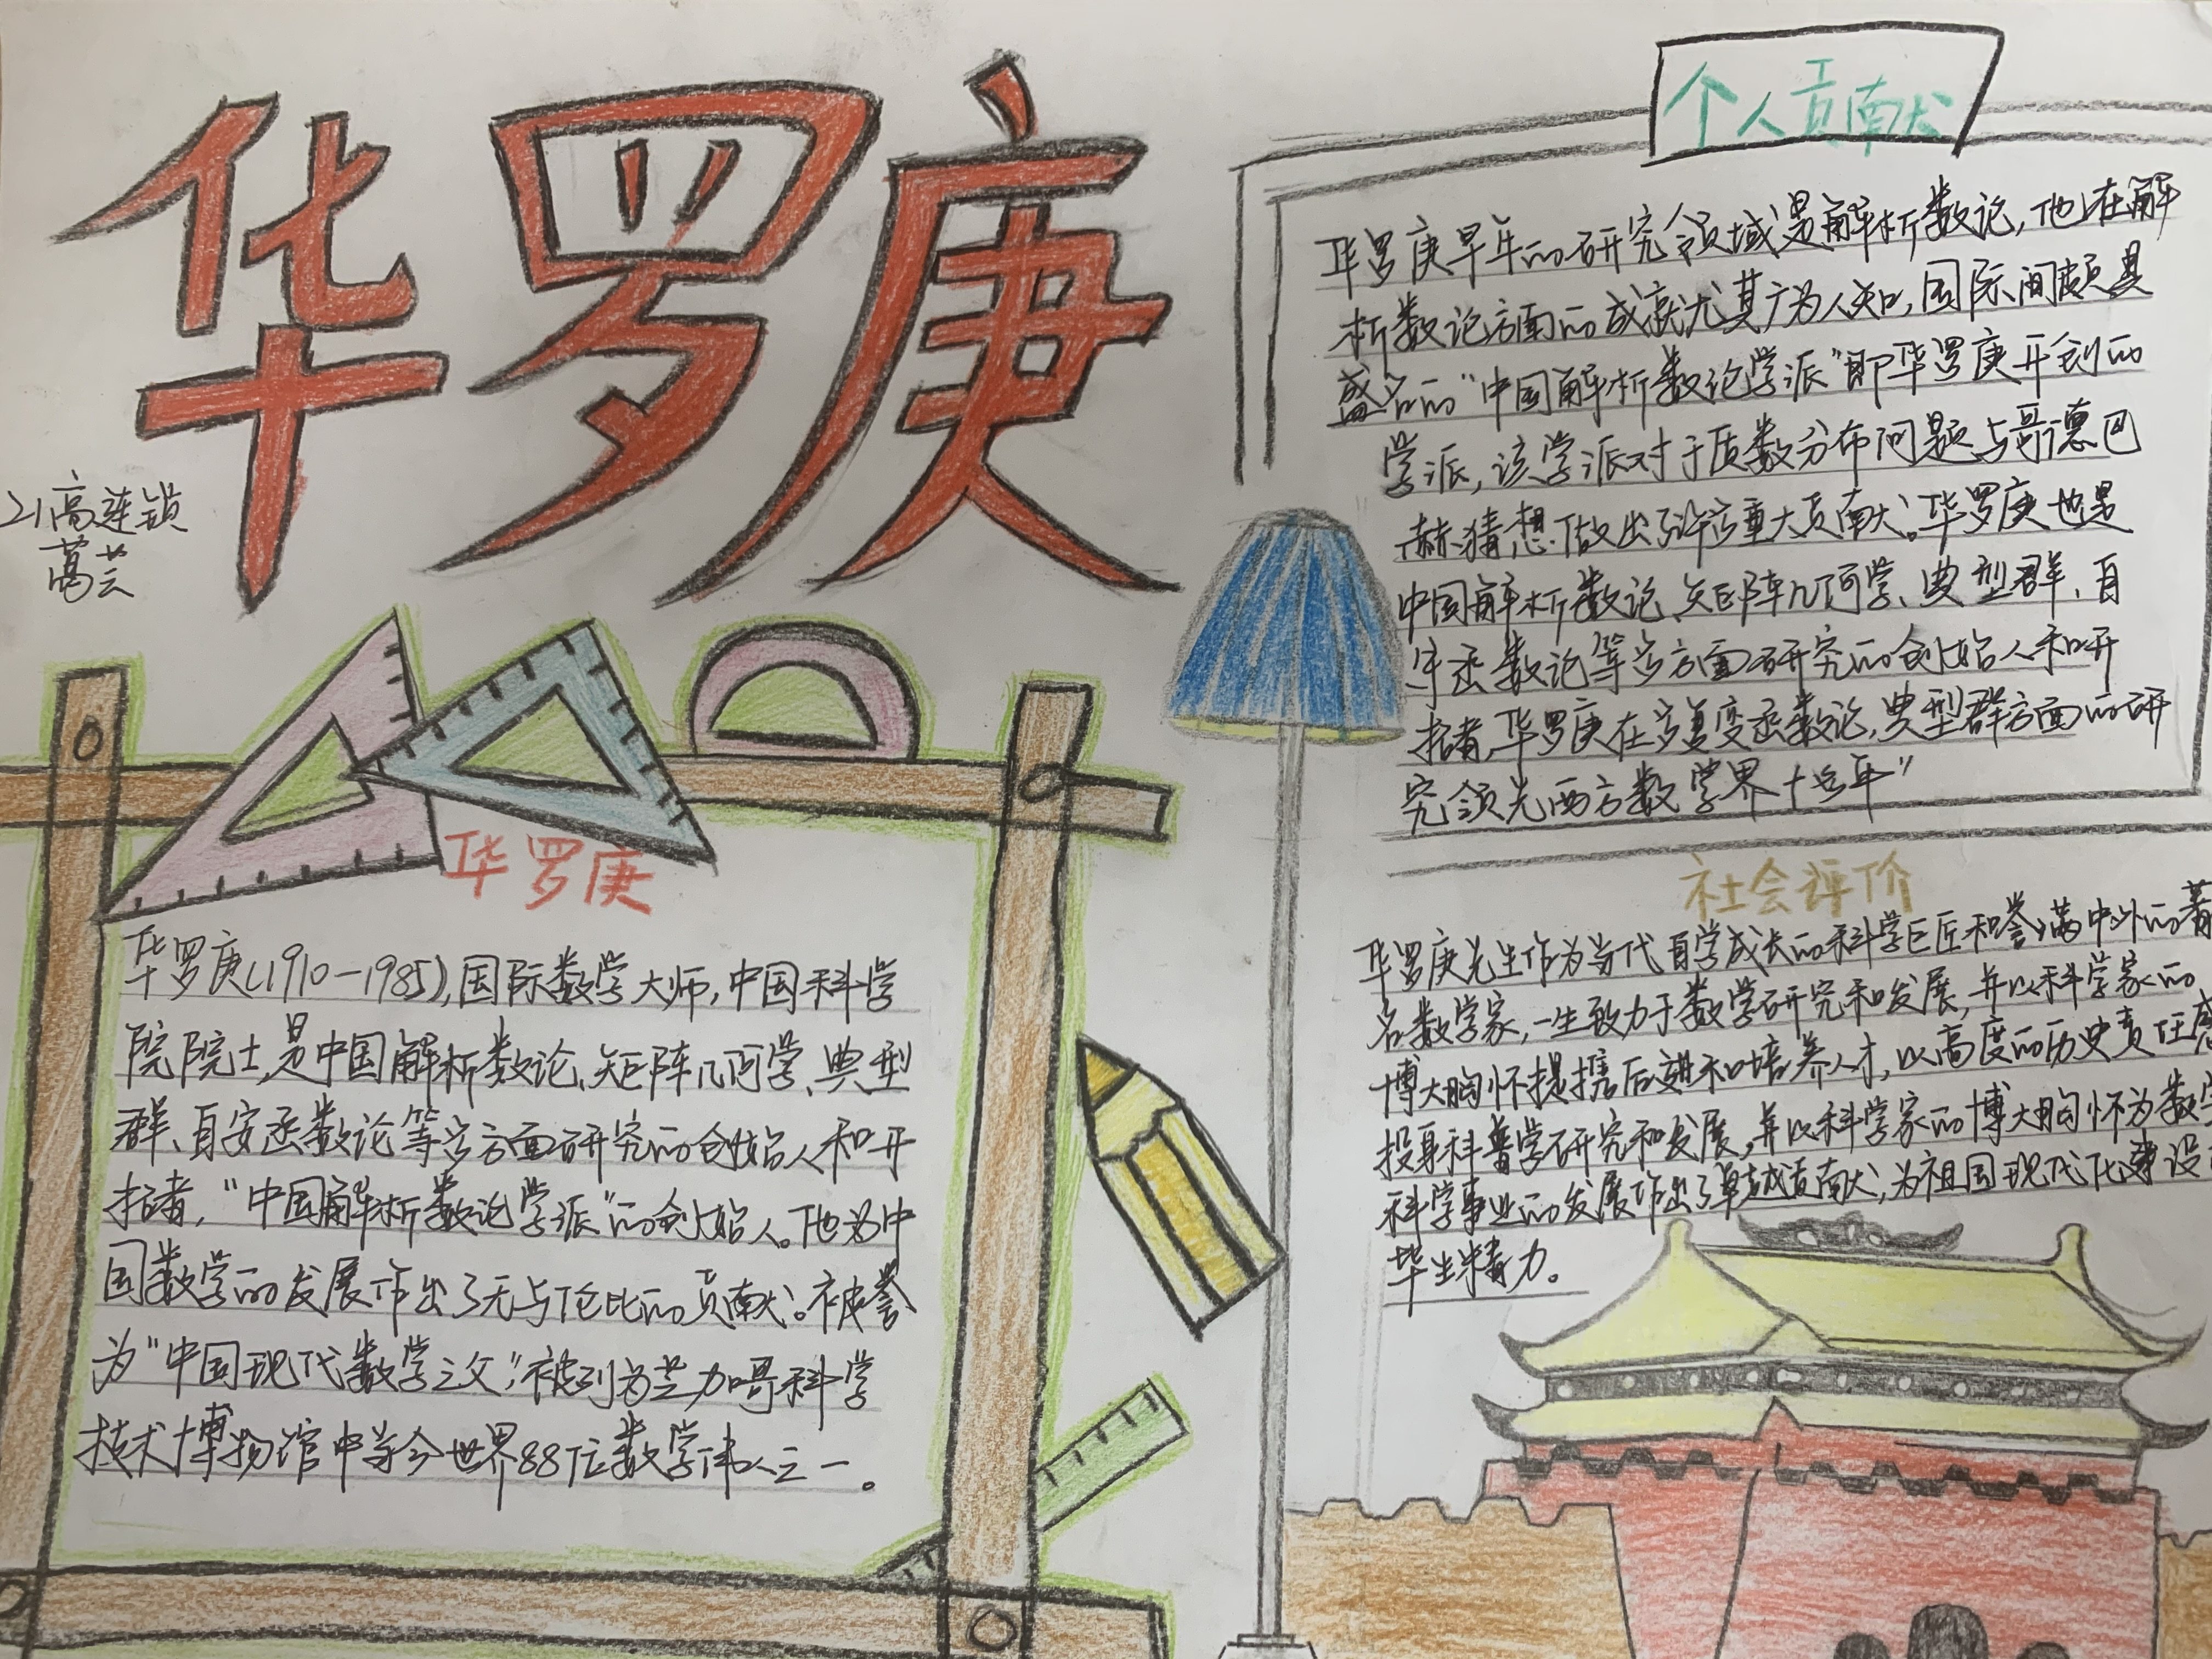 华罗庚
21高连锁
芸
华罗庚
华罗庚(1910-1985),国际数学大师,中国科学
院院士,是中国解析数论、矩阵几何学、典型
群、自安函数论等多方面研究的创始人和开
拓者,“中国解析数论学派”的创始人。他为中
国数学的发展作出了无与伦比的贡献。被誉
为“中国现代数学之父”,被列为芝加哥科学
技术博物馆中当今世界88位数学伟人之一。
个人贡献
华罗庚早年的研究领域是解析数论,他在解
析数论方面的成就尤其广为人知,国际间颇具
盛名的“中国解析数论学派”即华罗庚开创的
学派,该学派对于质数分布问题与哥德巴
赫猜想做出了许多重大贡献。华罗庚也是
中国解析数论、矩阵几何学、典型群、自
函数论等多方面研究的创始人和开
拓者,华罗庚在多复变函数论,典型群方面的研
究领先西方数学界十多年”
社会评价
华罗庚先生作为当代自学成长的科学巨匠和誉满中外的著
名数学家,一生致力于数学研究和发展,并以科学家的
博大胸怀提携后进和培养人才,以高度的历史责任感
投身科普学研究和发展,并以科学家的博大胸怀为数学
科学事业的发展作出了卓越贡献,为祖国现代化建设
毕生精力。